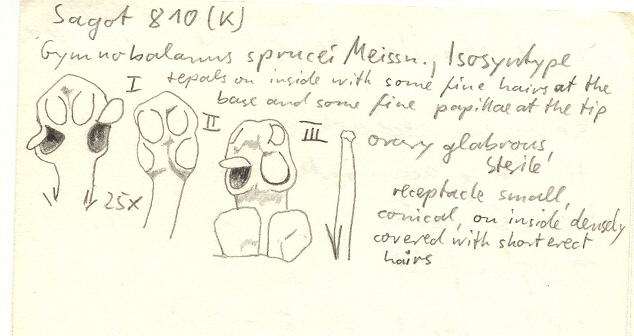 Sagot 810 (K)
Gymnobalanus sprucei Meissn., Isosyntype
tepals on inside with some fine hairs at the
base and some fine papillae at the tip
I
II
III
25x
ovary glabrous,
sterile
receptacle small,
conical, on inside densely
covered with short erect
hairs